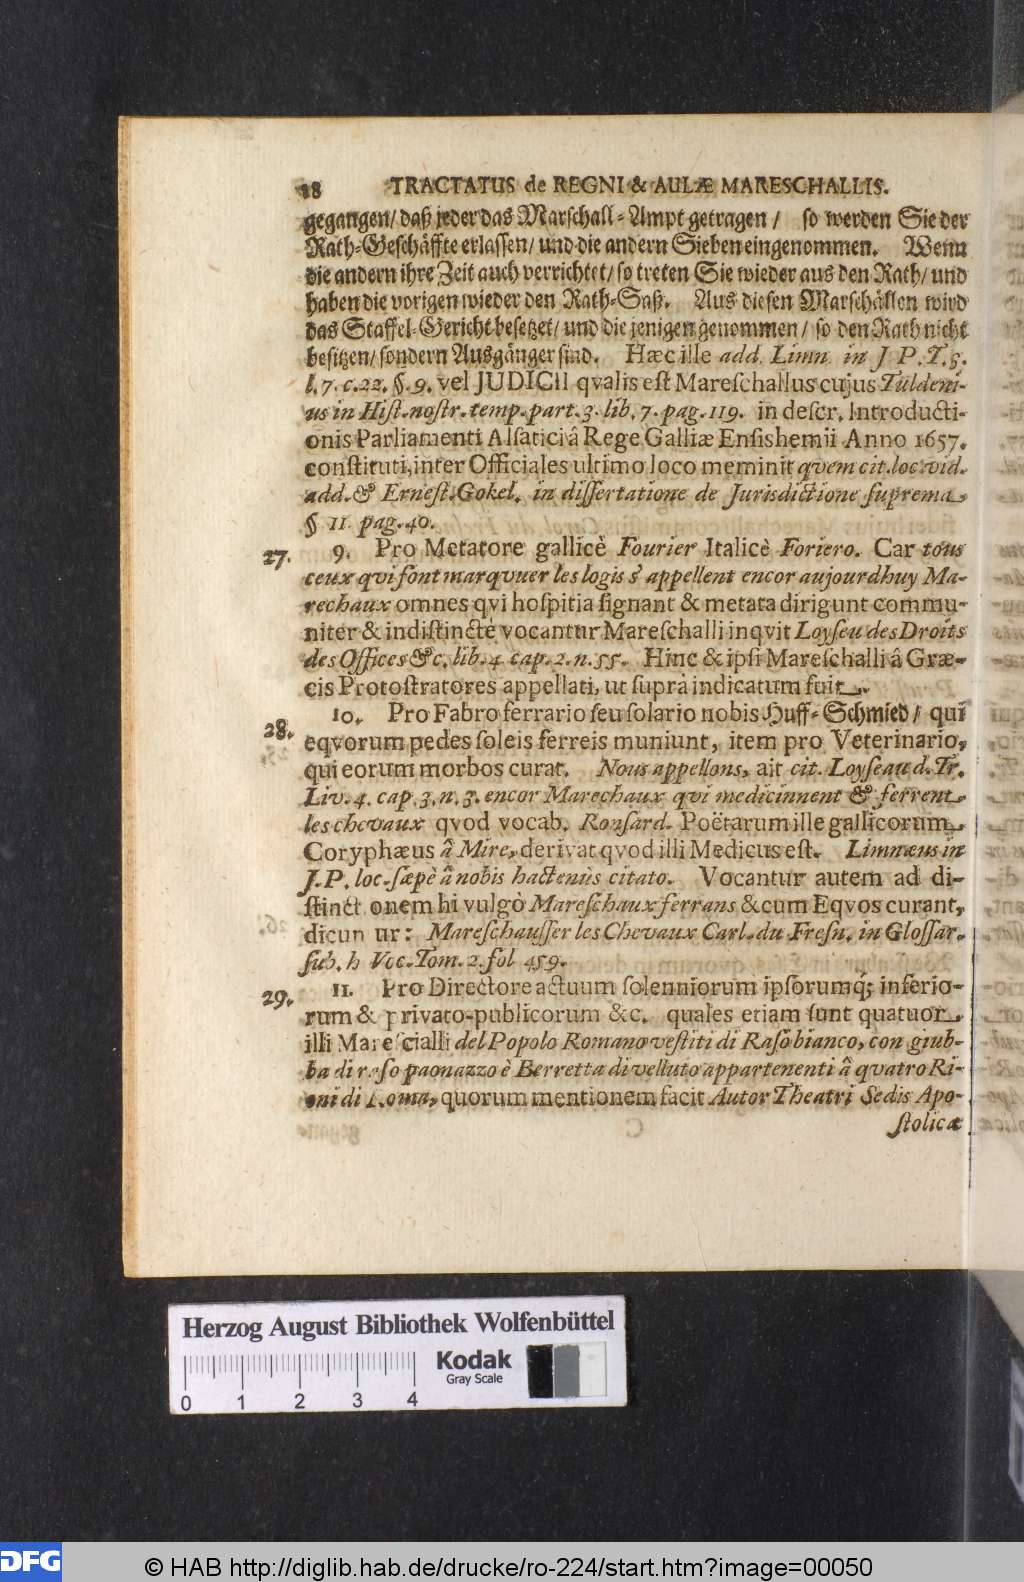 18 TRACTATUS de REGNI & AULÆ MARESCHALLIS.
gegangen/ daß jeder das Marschall-Ampt getragen/ so werden Sie der
Rath-Geschäffte erlassen/ und die andern Sieben eingenommen. Wenn
die andern ihre Zeit auch verrichtet/ so treten Sie wieder aus den Rath/ und
haben die vorigen wieder den Rath-Saß. Aus diesen Marschällen wird
das Staffel-Gericht besetzet/ und die jenigen genommen/ so den Rath nicht
besitzen/ sondern Ausgänger sind. Hæc ille add. Limn. in J P. T. 3.
l. 7. c. 22. §. 9. vel JUDICII qvalis est Mareschallus cujus Tuldeni-
us in Hist. nostr. temp. part. 3. lib. 7. pag. 119. in descr. Introducti-
onis Parliamenti Alsatici â Rege Galliæ Ensishemii Anno 1657.
constituti, inter Officiales ultimo loco meminit qvem cit. loc. vid.
add. & Ernest. Gokel. in dissertatione de Jurisdictione suprema
§ 11. pag. 40.
27. 9. Pro Metatore gallicè Fourier Italicè Foriero. Car tous
ceux qvi font marqvuer les logis s' appellent encor aujourdhuy Ma-
rechaux omnes qvi hospitia signant & metata dirigunt commu-
niter & indistinctè vocantur Mareschalli inqvit Loyseu des Droits
des Offices &c. lib. 4. cap. 2. n. 55. Hinc & ipsi Mareschalli â Græ-
cis Protostratores appellati, ut suprà indicatum fuit.
28. 10. Pro Fabro ferrario seu solario nobis Huff-Schmied/ qui
eqvorum pedes soleis ferreis muniunt, item pro Veterinario,
qui eorum morbos curat. Nous appellons, ait cit. Loyseau d. Tr.
Liv. 4. cap. 3. n. 3. encor Marechaux qvi medicinnent & ferrent
les chevaux qvod vocab. Ronsard. Poëtarum ille gallicorum
Coryphæus â Mire, derivat qvod illi Medicus est. Limnæus in
J. P. loc. sæpè â nobis hactenùs citato. Vocantur autem ad di-
stinct onem hi vulgò Mareschaux ferrans & cum Eqvos curant,
dicun ur: Mareschausser les Chevaux Carl. du Fresn. in Glossar.
sub. h Voc. Tom. 2. fol 459.
29. 11. Pro Directore actuum solenniorum ipsorumq; inferio-
rum & privato-publicorum &c. quales etiam sunt quatuor
illi Marescialli del Popolo Romano vestiti di Raso bianco, con giub-
ba di raso paonazzo è Berretta di velluto appartenenti â qvatro Ri-
oni di Roma, quorum mentionem facit Autor Theatri Sedis Apo-
stolicæ
Herzog August Bibliothek Wolfenbüttel
Kodak
Gray Scale
0 1 2 3 4
DFG © HAB http://diglib.hab.de/drucke/ro-224/start.htm?image=00050